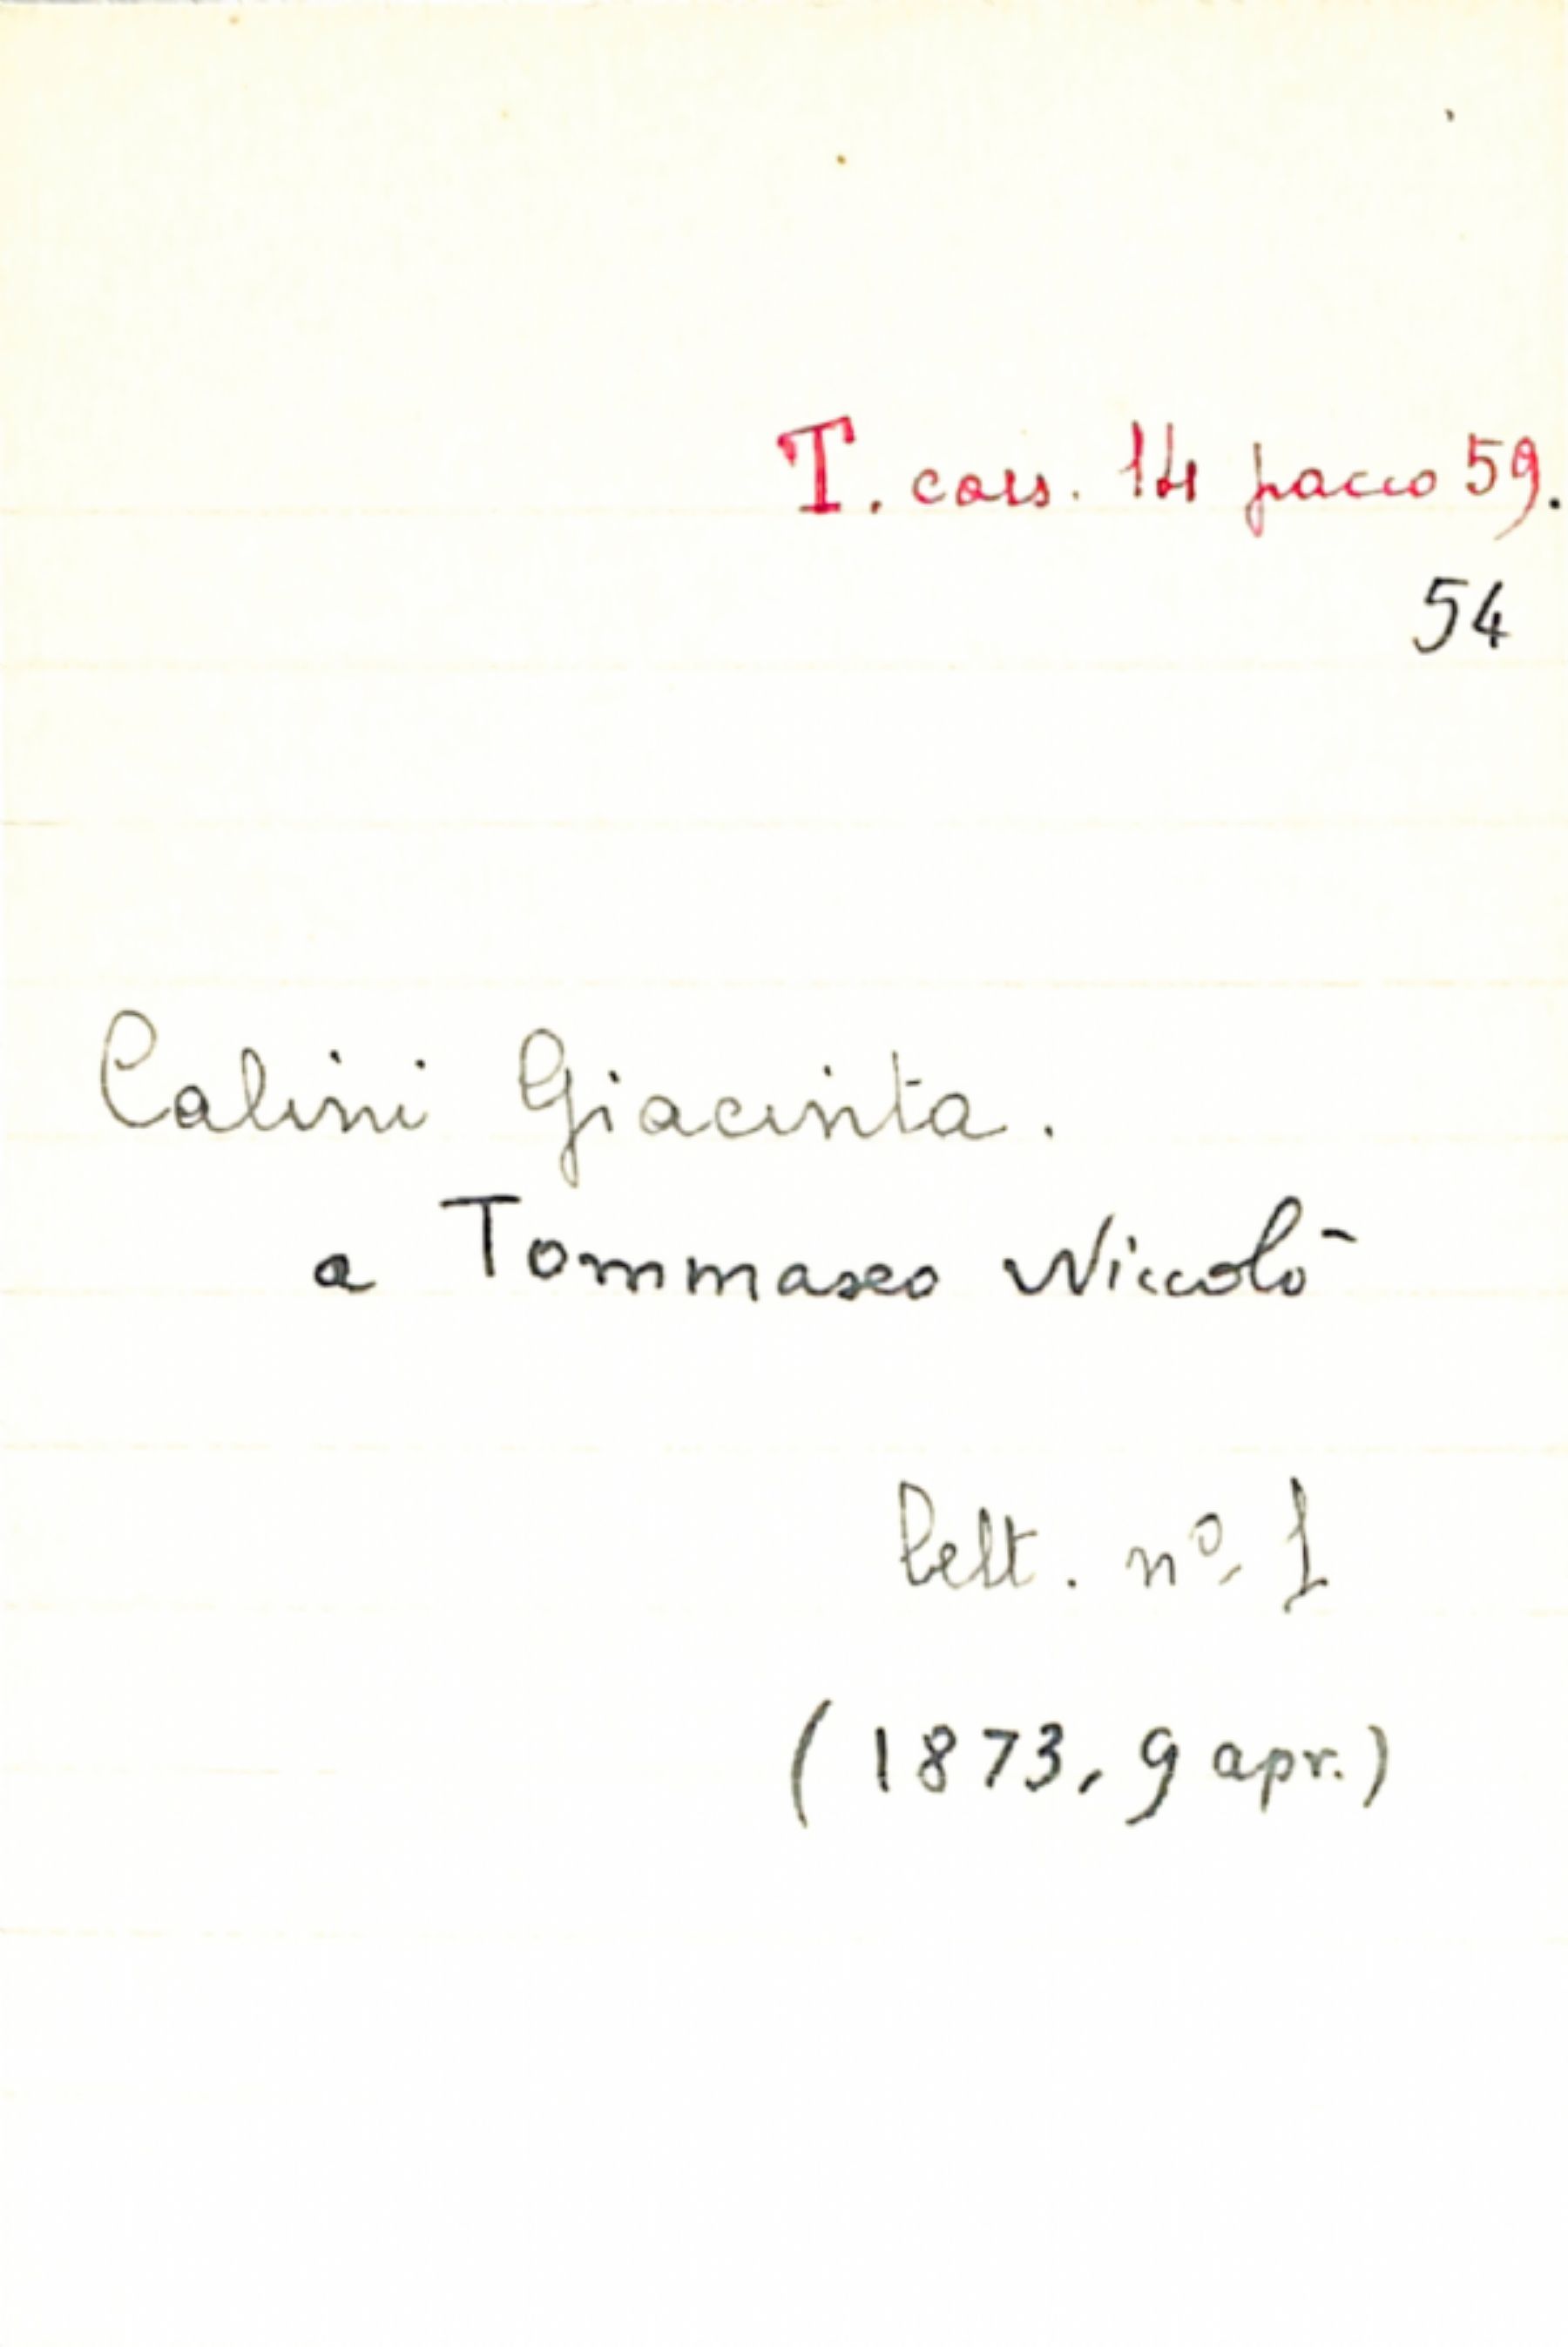 T. cass. 14 pacco 59.
54
Calini Giacinta.
a Tommaseo Niccolò
Lett. nº. 1
(1873, 9 apr.)